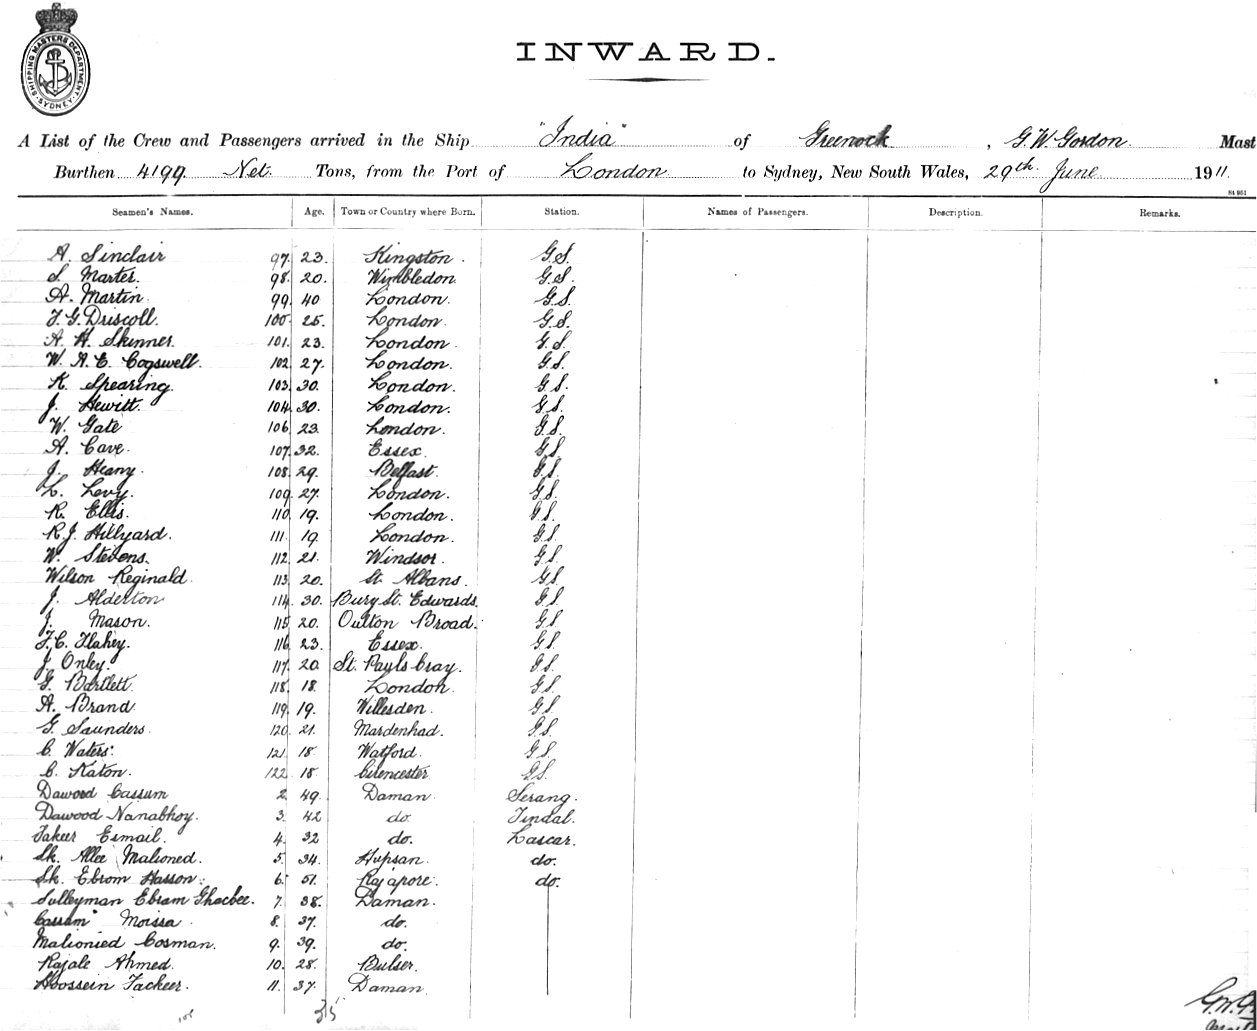 SHIPPING MASTERS DEPARTMENT SYDNEY
INWARD.
A List of the Crew and Passengers arrived in the Ship "India" of Greenock, G. W. Gordon Mast
Burthen 4199 Net Tons, from the Port of London to Sydney, New South Wales, 29th June 1911.
Seamen's Names. Age. Town or Country where Born. Station. Names of Passengers. Description. Remarks.
A. Sinclair 97. 23. Kingston. G.S.
S. Marter. 98. 20. Wimbledon. G.S.
A. Martin. 99. 40 London. G.S.
J. G. Driscoll. 100. 25. London. G.S.
A. H. Skinner. 101. 23. London. G.S.
W. A. E. Cogswell. 102. 27. London. G.S.
K. Spearing. 103. 30. London. G.S.
J. Hewitt. 104. 30. London. G.S.
W. Gate 106. 23. London. G.S.
A. Cave. 107. 32. Essex. G.S.
J. Heany. 108. 29. Belfast. G.S.
L. Levy. 109. 27. London. G.S.
R. Ellis. 110. 19. London. G.S.
R. J. Hillyard. 111. 19. London. G.S.
W. Stevens. 112. 21. Windsor. G.S.
Wilson Reginald. 113. 20. St. Albans. G.S.
J. Alderton 114. 30. Bury St. Edwards. G.S.
J. Mason. 115. 20. Oulton Broad. G.S.
F. C. Flahey. 116. 23. Essex. G.S.
J. Onley. 117. 20. St. Pauls Cray. G.S.
G. Bartlett. 118. 18. London. G.S.
A. Brand 119. 19. Willesden. G.S.
G. Saunders. 120. 21. Mardenhad. G.S.
C. Waters. 121. 18. Watford. G.S.
C. Katon. 122. 18. Cirencester G.S.
Dawood Cassum 2. 49. Daman. Serang.
Dawood Nanabhoy. 3. 42 do. Tindal.
Fakeer Esmail. 4. 32 do. Lascar.
Sk. Allee Malioned. 5. 34. Hupsan. do.
Sk. Ebrom Hasson. 6. 51. Rajapore. do.
Sulleyman Ebram Ghacbee. 7. 38. Daman.
Cassam Moissa 8. 37. do.
Malionied Cosman. 9. 39. do.
Rajale Ahmed. 10. 28. Bulser.
Hoossein Fackeer. 11. 37. Daman.